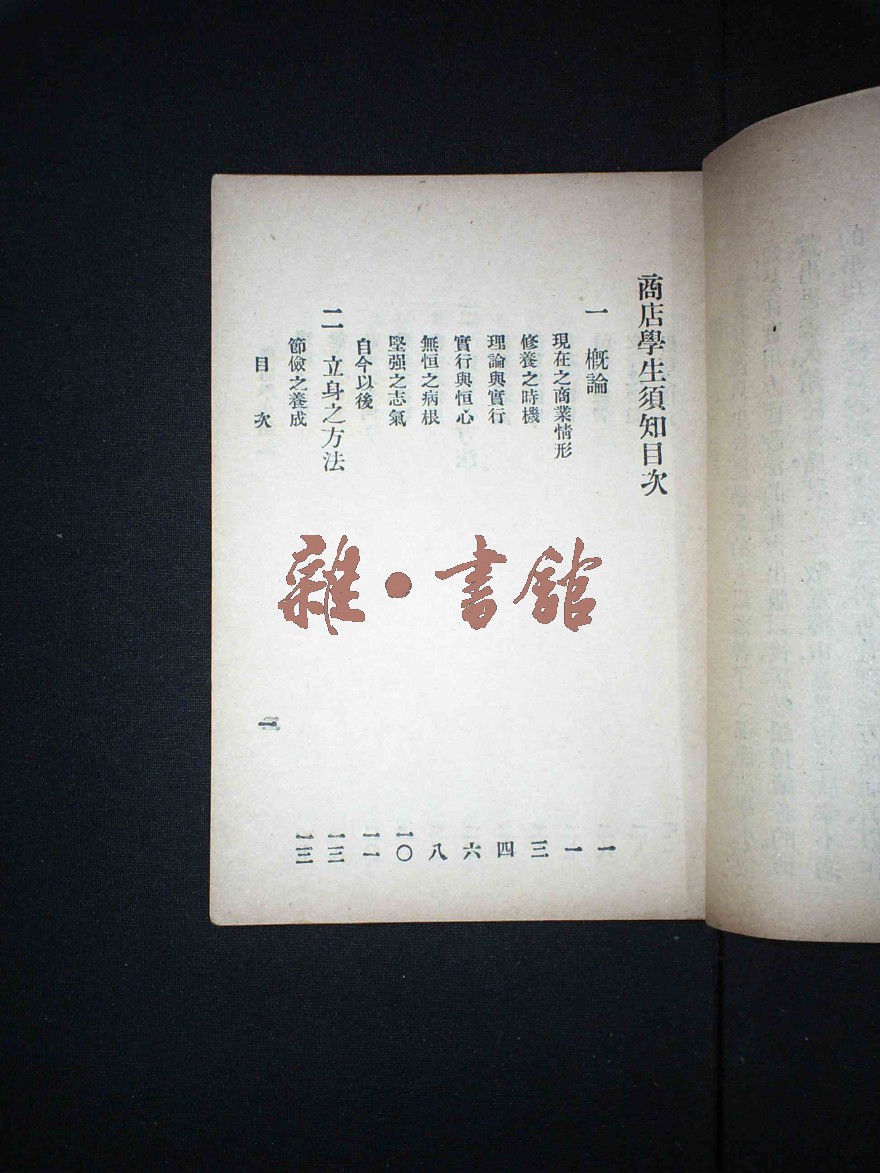 商店學生須知目次
一 概論 一
現在之商業情形 一
修養之時機 三
理論與實行 四
實行與恒心 六
無恒之病根 八
堅强之志氣 一〇
自今以後 一一
二 立身之方法 一三
節儉之養成 一三
目次 一
雜·書館